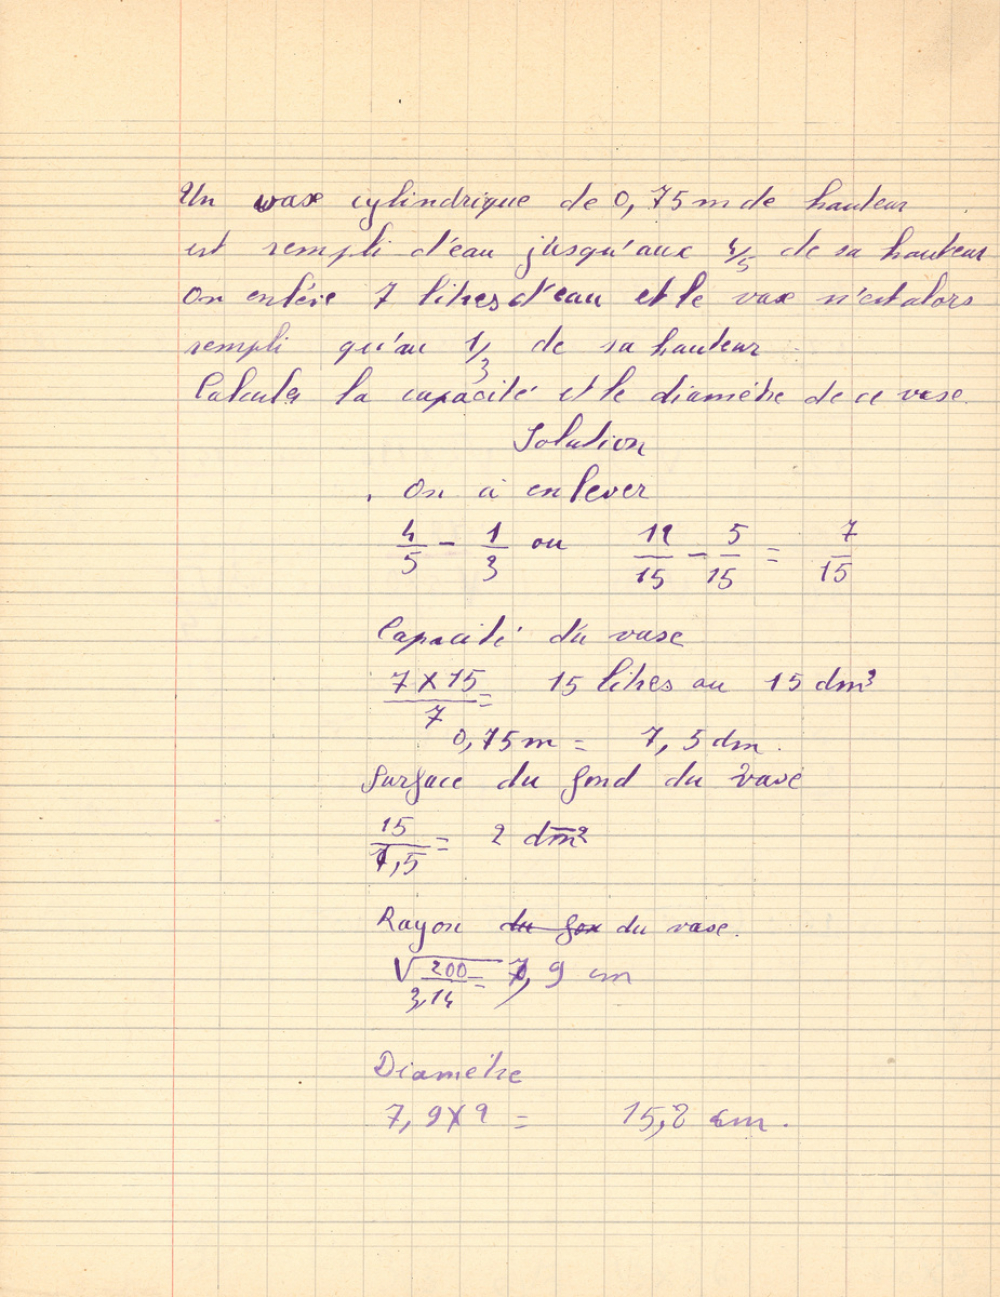 Un vase cylindrique de 0,75 m de hauteur
est rempli d'eau jusqu'aux 4/5 de sa hauteur
On enlève 7 litres d'eau et le vase n'est alors
rempli qu'au 1/3 de sa hauteur
Calculer la capacité et le diamètre de ce vase.
Solution
On a enlever
4/5 - 1/3 ou 12/15 - 5/15 = 7/15
Capacité du vase
7 X 15 / 7 = 15 litres ou 15 dm³
0,75 m = 7,5 dm.
Surface du fond du vase
15 / 7,5 = 2 dm²
Rayon du fon du vase.
√200 / 3,14 = 7,9 cm
Diamètre
7,9 X 2 = 15,8 cm.